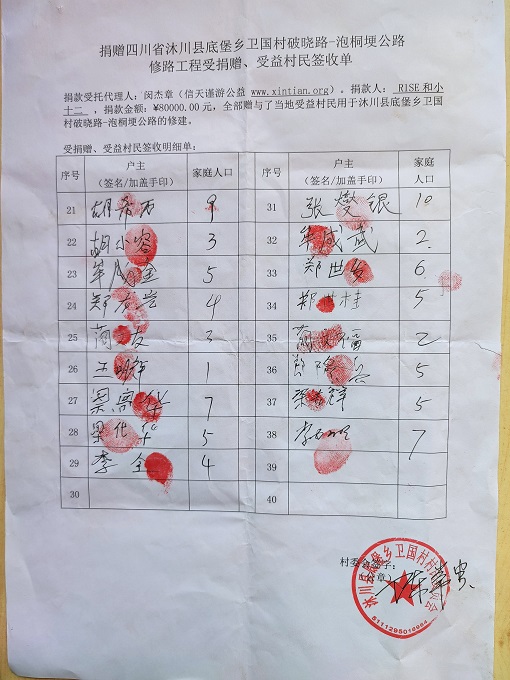 捐赠四川省沐川县底堡乡卫国村破晓路-泡桐埂公路
修路工程受捐赠、受益村民签收单
捐款受托代理人：闵杰章（信天谨游公益 www.xintian.org）。捐款人： RISE和小
十二 ，捐款金额：¥80000.00元，全部赠与了当地受益村民用于沐川县底堡乡卫国
村破晓路-泡桐埂公路的修建。
受捐赠、受益村民签收明细单：
序号 户主（签名/加盖手印） 家庭人口 序号 户主（签名/加盖手印） 家庭人口
21 胡希 31 张 银 10
22 胡小容 3 32 成武 2
23 5 33 郑世 6
24 郑 4 34 郑世桂 5
25 友 3 35 福 2
26 王明 1 36 5
27 梁 华 7 37 梁 5
28 梁 华 5 38 李 7
29 李全 4 39
30 40
村委会签字：
（公章）
沐川县底堡乡卫国村村民委员会